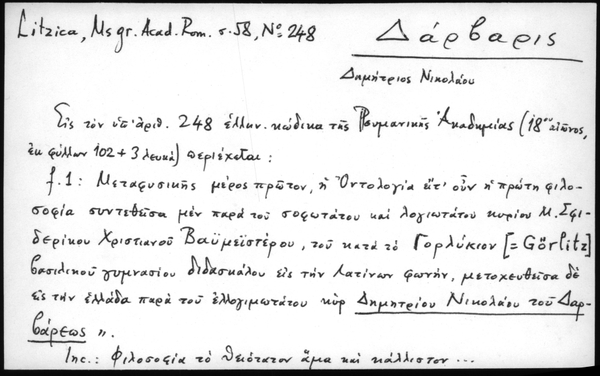 Litzica, Ms gr. Acad. Rom. σ. 58, Nο 248
Δάρβαρις
Δημήτριος Νικολάου
Εἰς τὸν ὑπ' ἀριθ. 248 ἑλλην. κώδικα τῆς Ῥουμανικῆς Ἀκαδημίας (18ου αἰῶνος,
ἐκ φύλλων 102 + 3 λευκὰ) περιέχεται :
f. 1 : Μεταφυσικῆς μέρος πρῶτον, ἡ Ὀντολογία εἴτ' οὖν ἡ πρώτη φιλο-
σοφία συντεθεῖσα μὲν παρὰ τοῦ σοφωτάτου καὶ λογιωτάτου κυρίου Μ. Σφι-
δερίκου Χριστιανοῦ Βαϋμεϊστέρου, τοῦ κατὰ τὸ Γορλύκιον [= Görlitz]
βασιλικοῦ γυμνασίου διδασκάλου εἰς τὴν Λατίνων φωνήν, μετοχευθεῖσα δὲ
εἰς τὴν ἑλλάδα παρὰ τοῦ ἐλλογιμωτάτου κὺρ Δημητρίου Νικολάου τοῦ Δαρ-
βάρεως ".
Inc. : Φιλοσοφία τὸ θειότατον ἅμα καὶ κάλλιστον ...